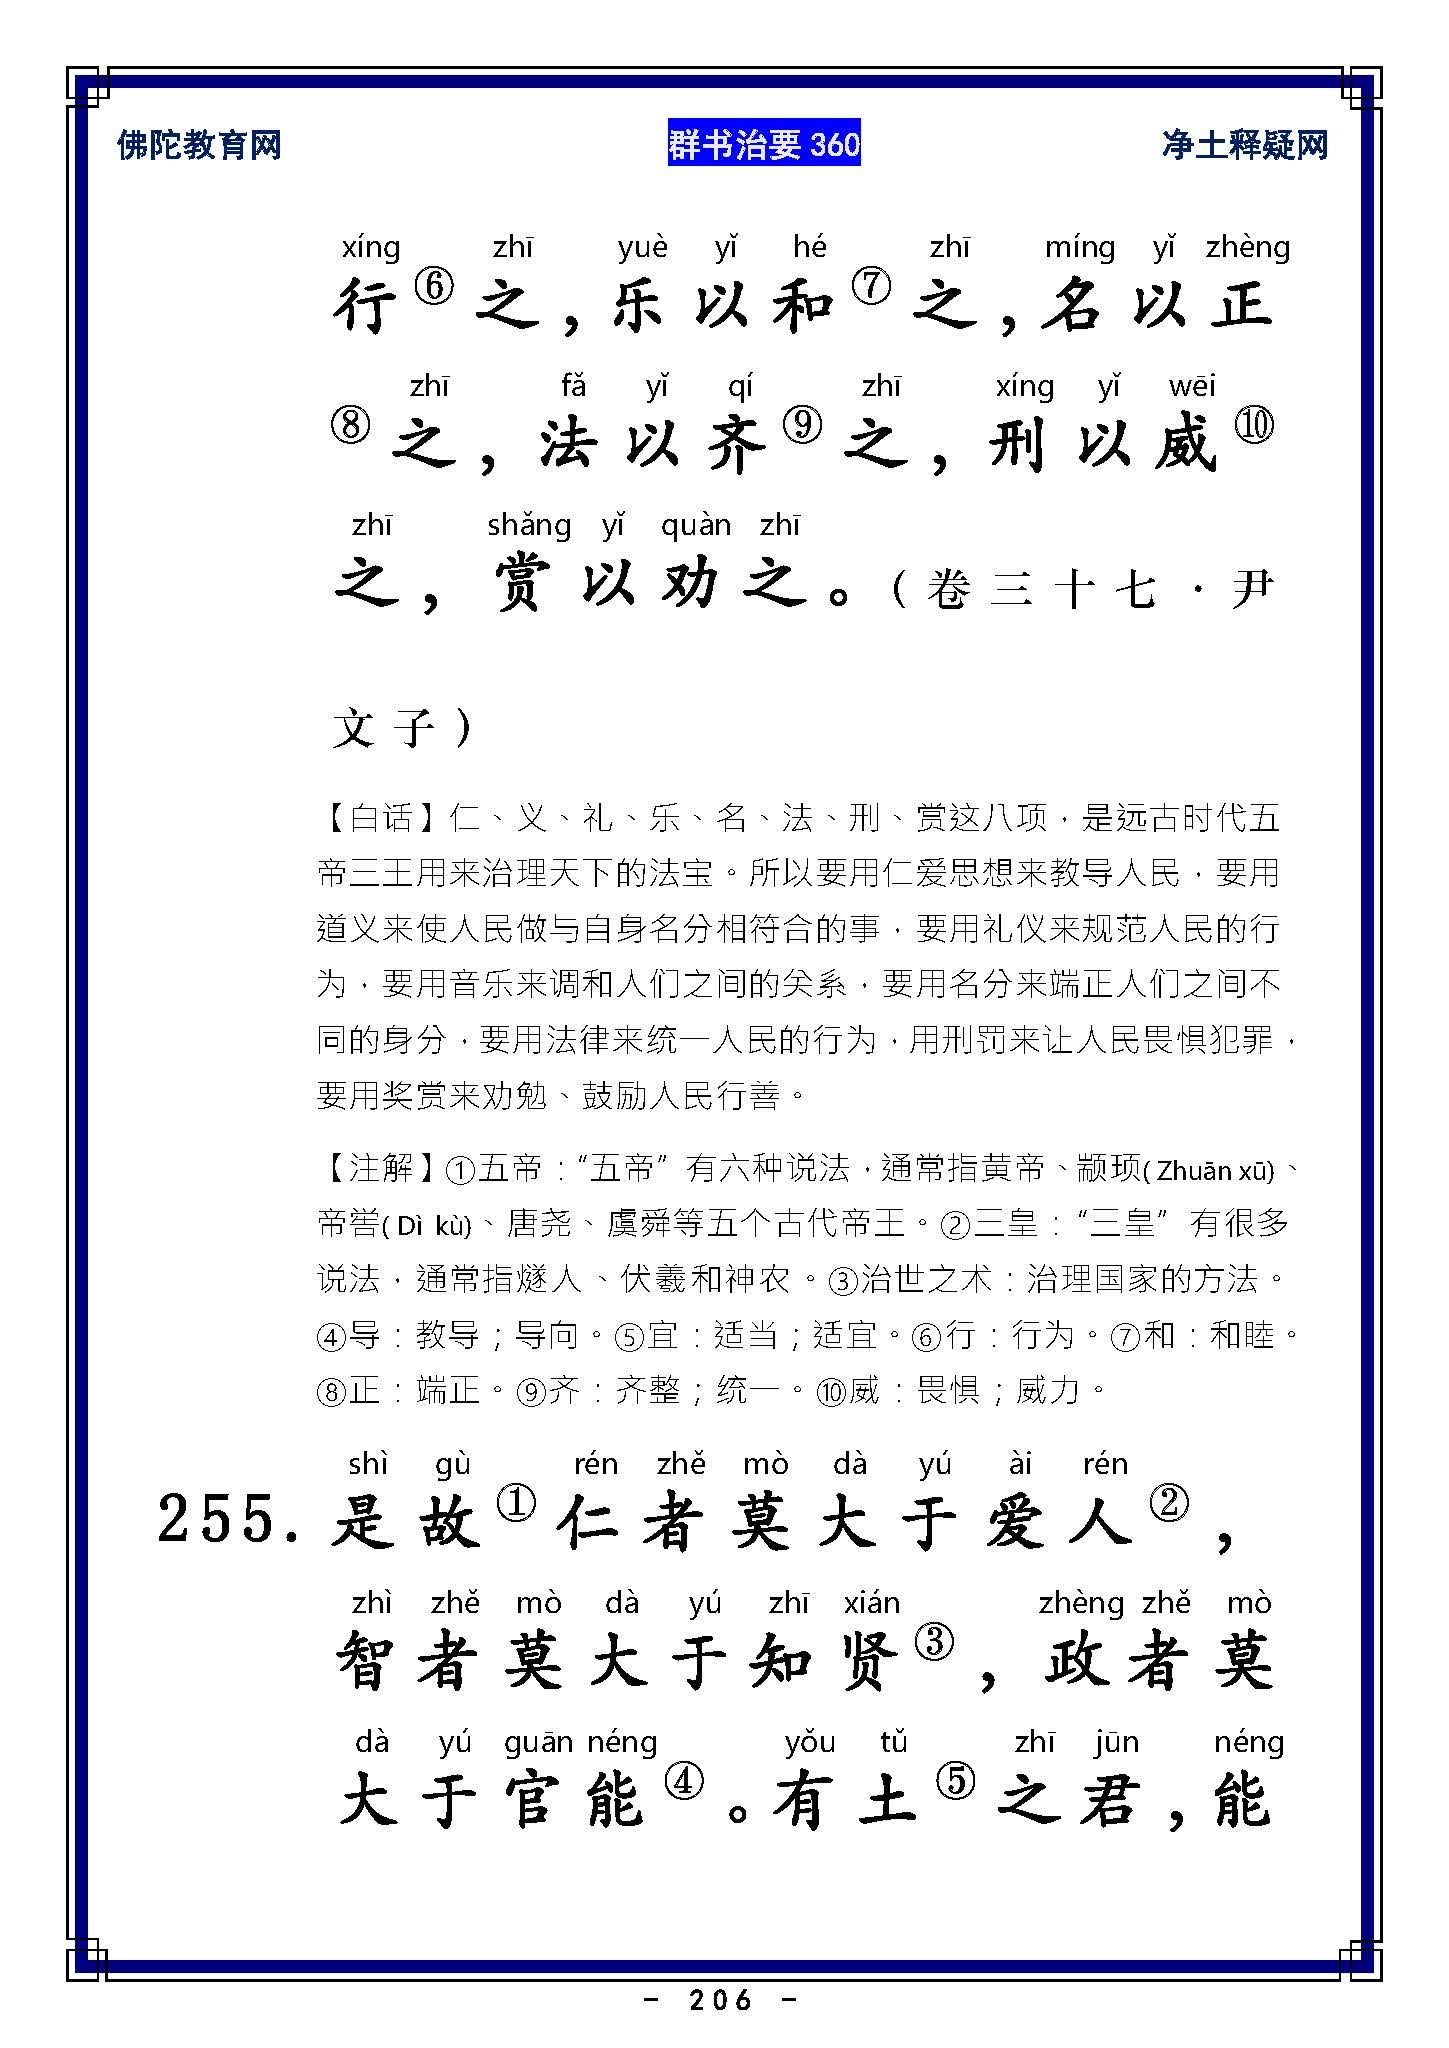 佛陀教育网 群书治要360 净土释疑网
xíng zhī yuè yǐ hé zhī míng yǐ zhèng
行⑥之，乐以和⑦之，名以正
zhī fǎ yǐ qí zhī xíng yǐ wēi
⑧之，法以齐⑨之，刑以威⑩
zhī shǎng yǐ quàn zhī
之，赏以劝之。（卷三十七·尹
文子）
【白话】仁、义、礼、乐、名、法、刑、赏这八项，是远古时代五
帝三王用来治理天下的法宝。所以要用仁爱思想来教导人民，要用
道义来使人民做与自身名分相符合的事，要用礼仪来规范人民的行
为，要用音乐来调和人们之间的关系，要用名分来端正人们之间不
同的身分，要用法律来统一人民的行为，用刑罚来让人民畏惧犯罪，
要用奖赏来劝勉、鼓励人民行善。
【注解】①五帝：“五帝”有六种说法，通常指黄帝、颛顼(Zhuān xū)、
帝喾(Dì kù)、唐尧、虞舜等五个古代帝王。②三皇：“三皇”有很多
说法，通常指燧人、伏羲和神农。③治世之术：治理国家的方法。
④导：教导；导向。⑤宜：适当；适宜。⑥行：行为。⑦和：和睦。
⑧正：端正。⑨齐：齐整；统一。⑩威：畏惧；威力。
shì gù rén zhě mò dà yú ài rén
255.是故①仁者莫大于爱人②，
zhì zhě mò dà yú zhī xián zhèng zhě mò
智者莫大于知贤③，政者莫
dà yú guān néng yǒu tǔ zhī jūn néng
大于官能④。有土⑤之君，能
- 206 -